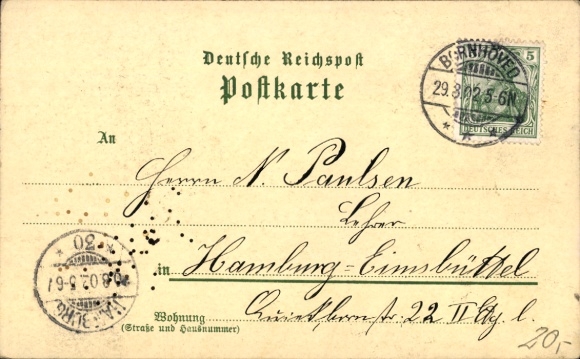 Deutsche Reichspost
Postkarte
BORNHÖVED
29.8.02.5-6N.
5
DEUTSCHES REICH
An
Herrn N. Paulsen
Lehrer
in Hamburg-Eimsbüttel
Wohnung
(Straße und Hausnummer)
Quickbornstr. 22 II Etg. l.
HAMBURG
.8.02.5-6
30
20,-